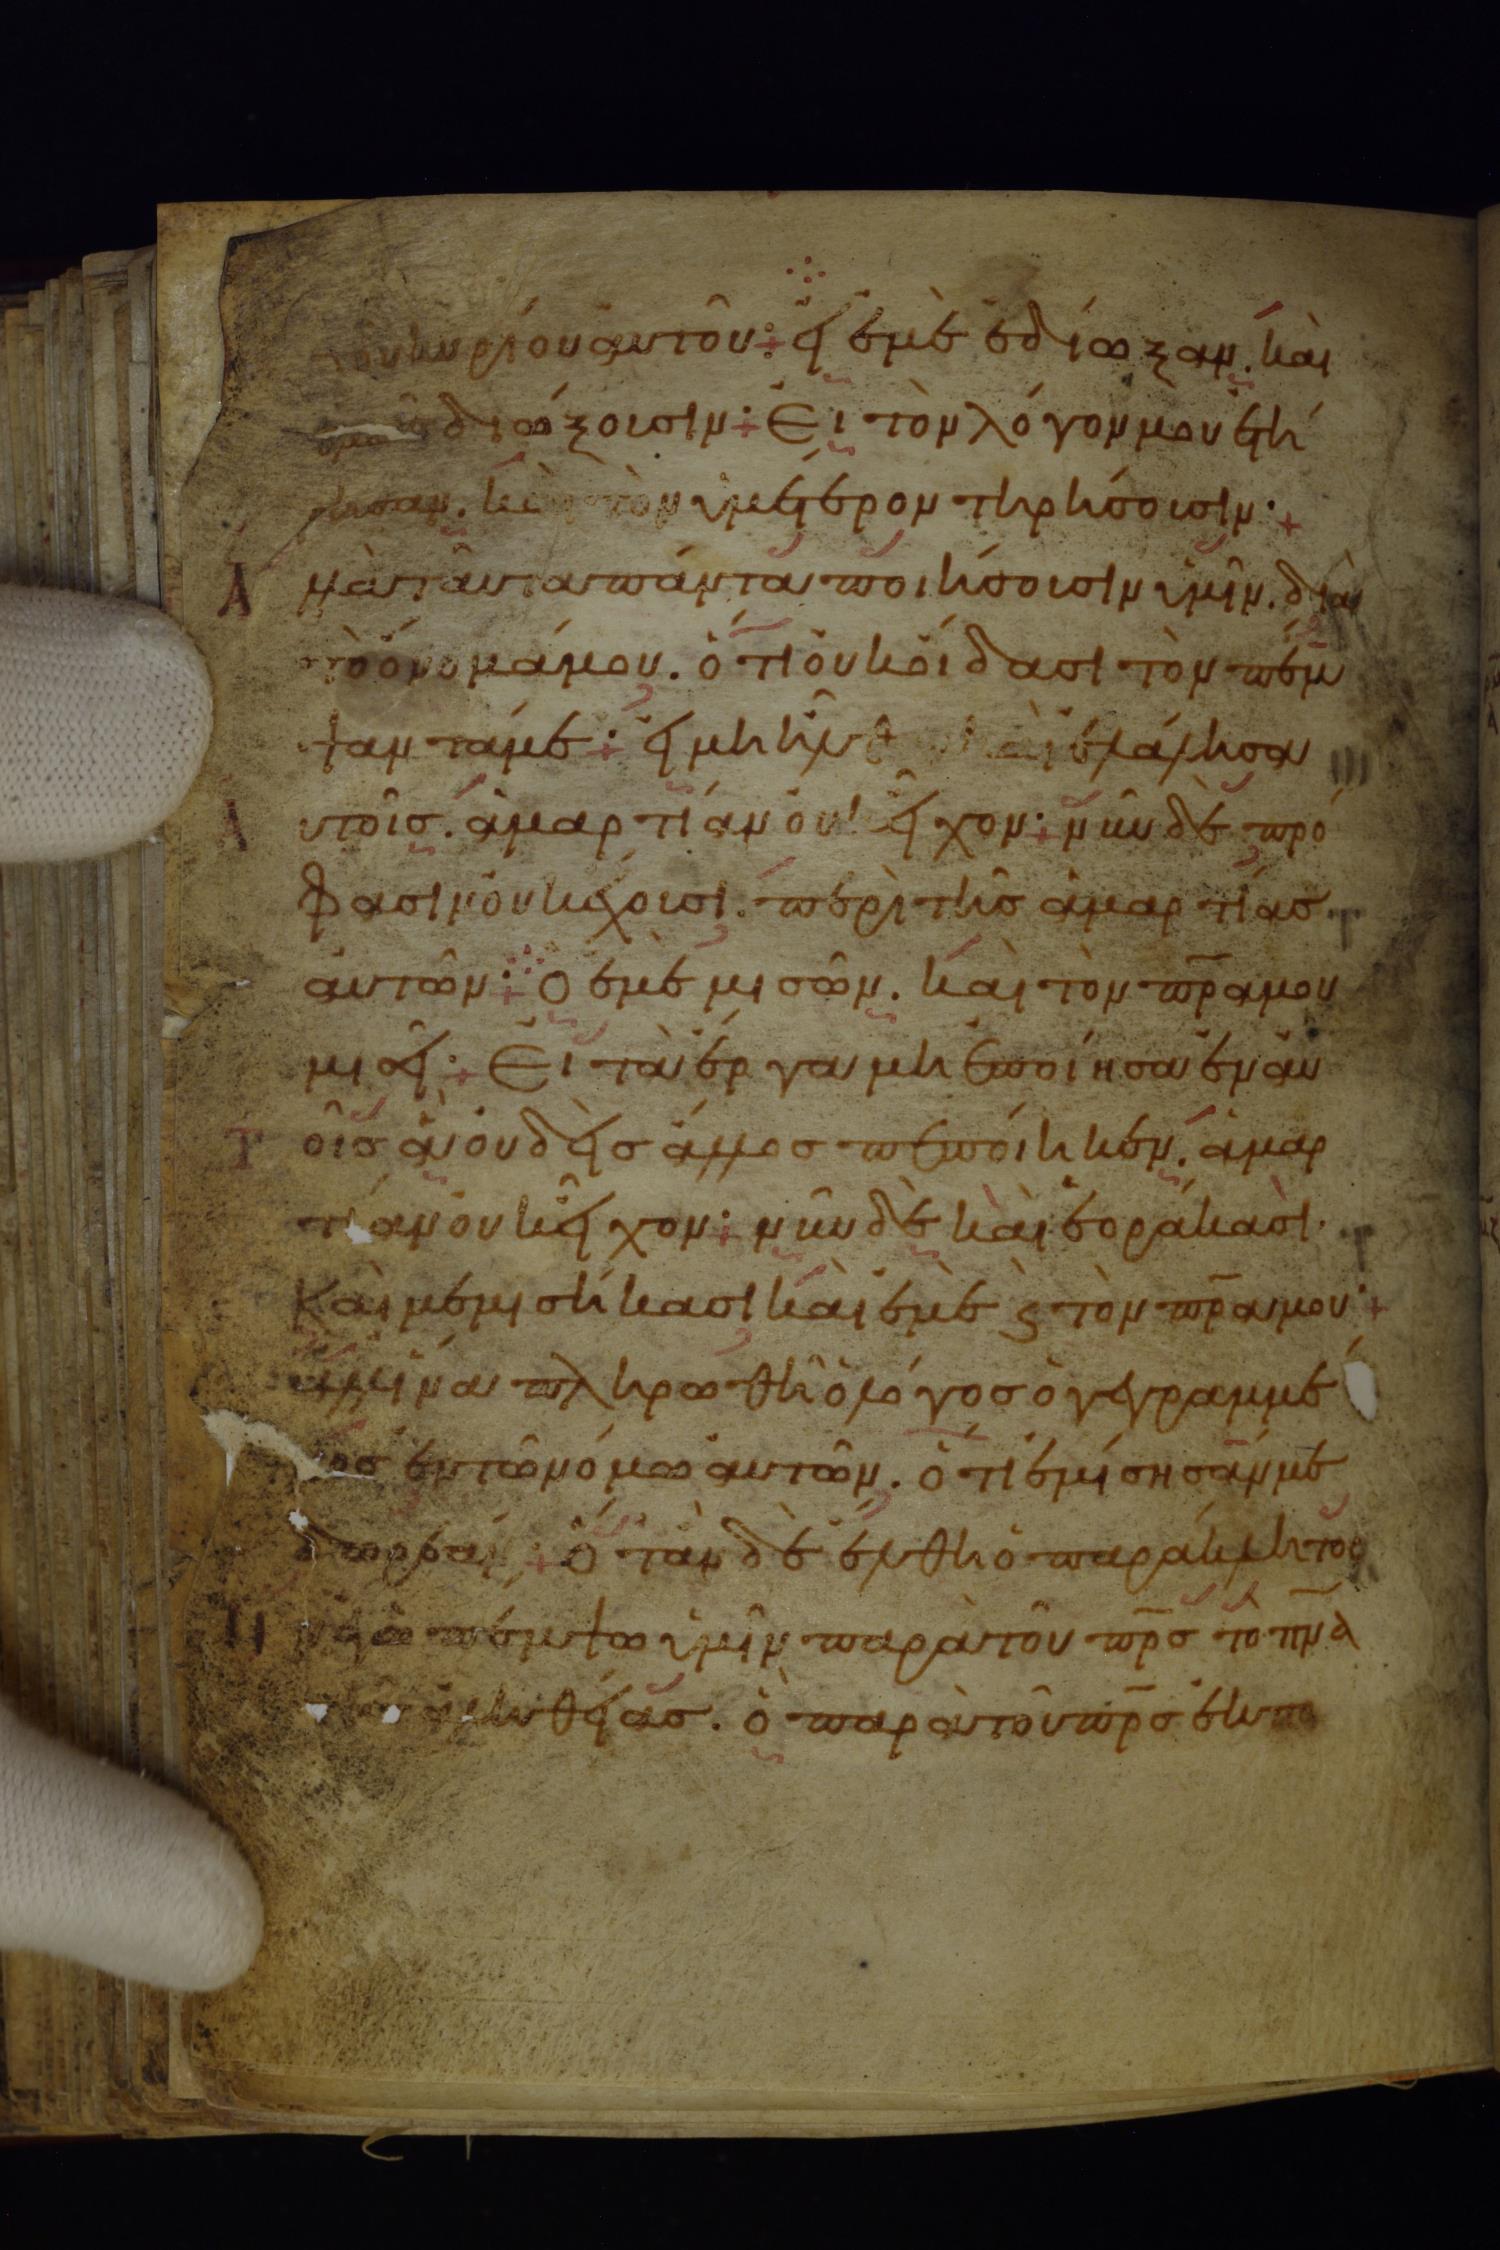 τοῦ κυρίου αὐτοῦ: εἰ ἐμὲ ἐδίωξαν. καὶ
ὑμᾶς διώξουσιν: Εἰ τὸν λόγον μου ἐτή
ρησαν. καὶ τὸν ὑμέτερον τηρήσουσιν·
Α
λλὰ ταῦτα πάντα ποιήσουσιν ὑμῖν. διὰ
τὸ ὄνομά μου. ὅτι οὐκ οἴδασι τὸν πέμ
ψαντά με: εἰ μὴ ἦλθ καὶ ἐλάλησα
Α
υτοῖς. ἁμαρτίαν οὐκ εἶχον: νῦν δὲ πρό
φασιν οὐκ ἔχουσι. περὶ τῆς ἁμαρτίας
αὐτῶν: Ὁ ἐμὲ μισῶν. καὶ τὸν πρ̅α μου
μισεῖ: Εἰ τὰ ἔργα μὴ ἐποίησα ἐν αὐ
Τ
οῖς ἃ οὐδεὶς ἄλλος πεποίηκεν. ἁμαρ
τίαν οὐκ εἶχον: νῦν δὲ καὶ ἑοράκασι.
Καὶ μεμισήκασι καὶ ἐμὲ ϗ τὸν πρ̅α μου:
ἀλλ' ἵνα πληρωθῆ ὁ λόγος ὁ γεγραμμέ
νος ἐν τῶ νόμω αὐτῶν. ὅτι ἐμίσησάν με
δωρεάν: Ὅταν δὲ ἔλθη ὁ παράκλητος
ἐγὼ πέμψω ὑμῖν παρὰ τοῦ πρ̅ς τὸ πν̅α
τῆς ἀληθείας. ὃ παρὰ τοῦ πρ̅ς ἐκπο